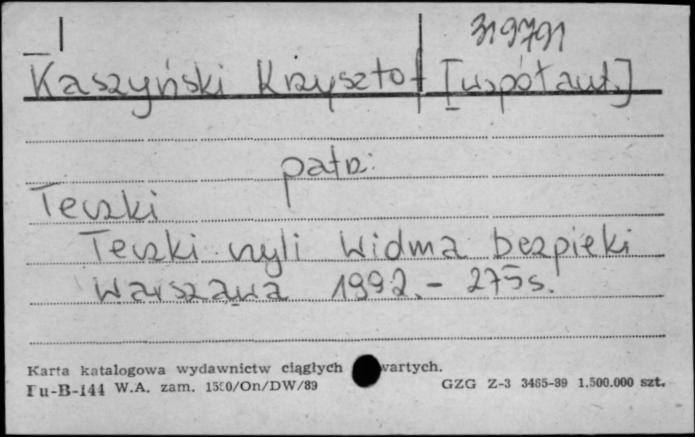 319791
Kaszyński Krzysztof [współaut.]
patrz:
Teczki
Teczki czyli widma bezpieki
Warszawa 1992.- 275s.
Karta katalogowa wydawnictw ciągłych wartych.
Pu-B-144 W.A. zam. 1550/On/DW/89 GZG Z-3 3465-89 1.500.000 szt.